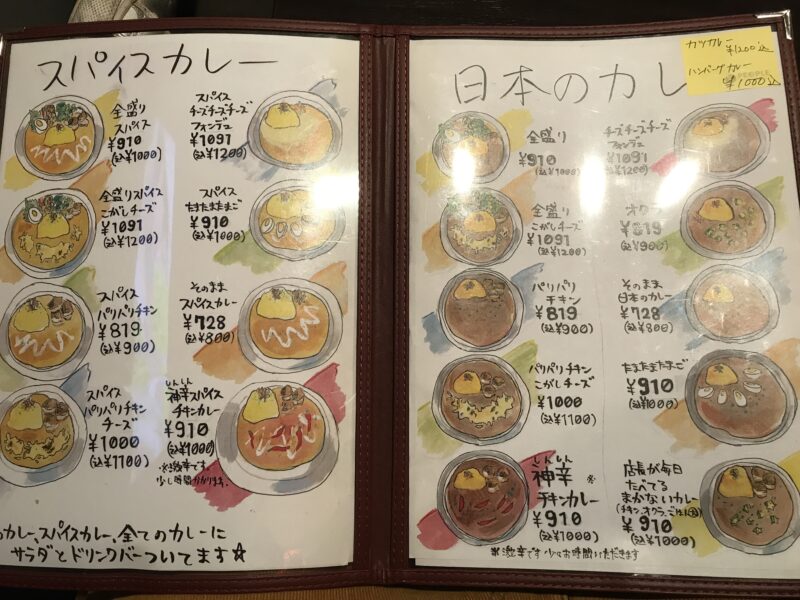 スパイスカレー
全盛り
スパイス
¥910
(込¥1000)
スパイス
チーズチーズチーズ
フォンデュ
¥1091
(込¥1200)
全盛りスパイス
こがしチーズ
¥1091
(込¥1200)
スパイス
たまたまたまご
¥910
(込¥1000)
スパイス
パリパリチキン
¥819
(込¥900)
そのまま
スパイスカレー
¥728
(込¥800)
スパイス
パリパリチキン
チーズ
¥1000
(込¥1100)
しんしん
神辛スパイス
チキンカレー
¥910
(込¥1000)
少し時間かかります。
カレー、スパイスカレー、全てのカレーに
サラダとドリンクバーついてます☆
日本のカレ
カツカレー
¥1200込
ハンバーグカレー
¥1000込
全盛り
¥910
(込¥1000)
チーズチーズチーズ
フォンデュ
¥1091
(込¥1200)
全盛り
こがしチーズ
¥1091
(込¥1200)
オクラ
¥819
(込¥900)
パリパリ
チキン
¥819
(込¥900)
そのまま
日本のカレー
¥728
(込¥800)
パリパリチキン
こがしチーズ
¥1000
(込¥1100)
たまたまたまご
¥910
(込¥1000)
しんしん
神辛※
チキンカレー
¥910
(込¥1000)
店長が毎日
たべてる
まかないカレー
¥910
(込¥1000)
※激辛です 少々お時間いただきます